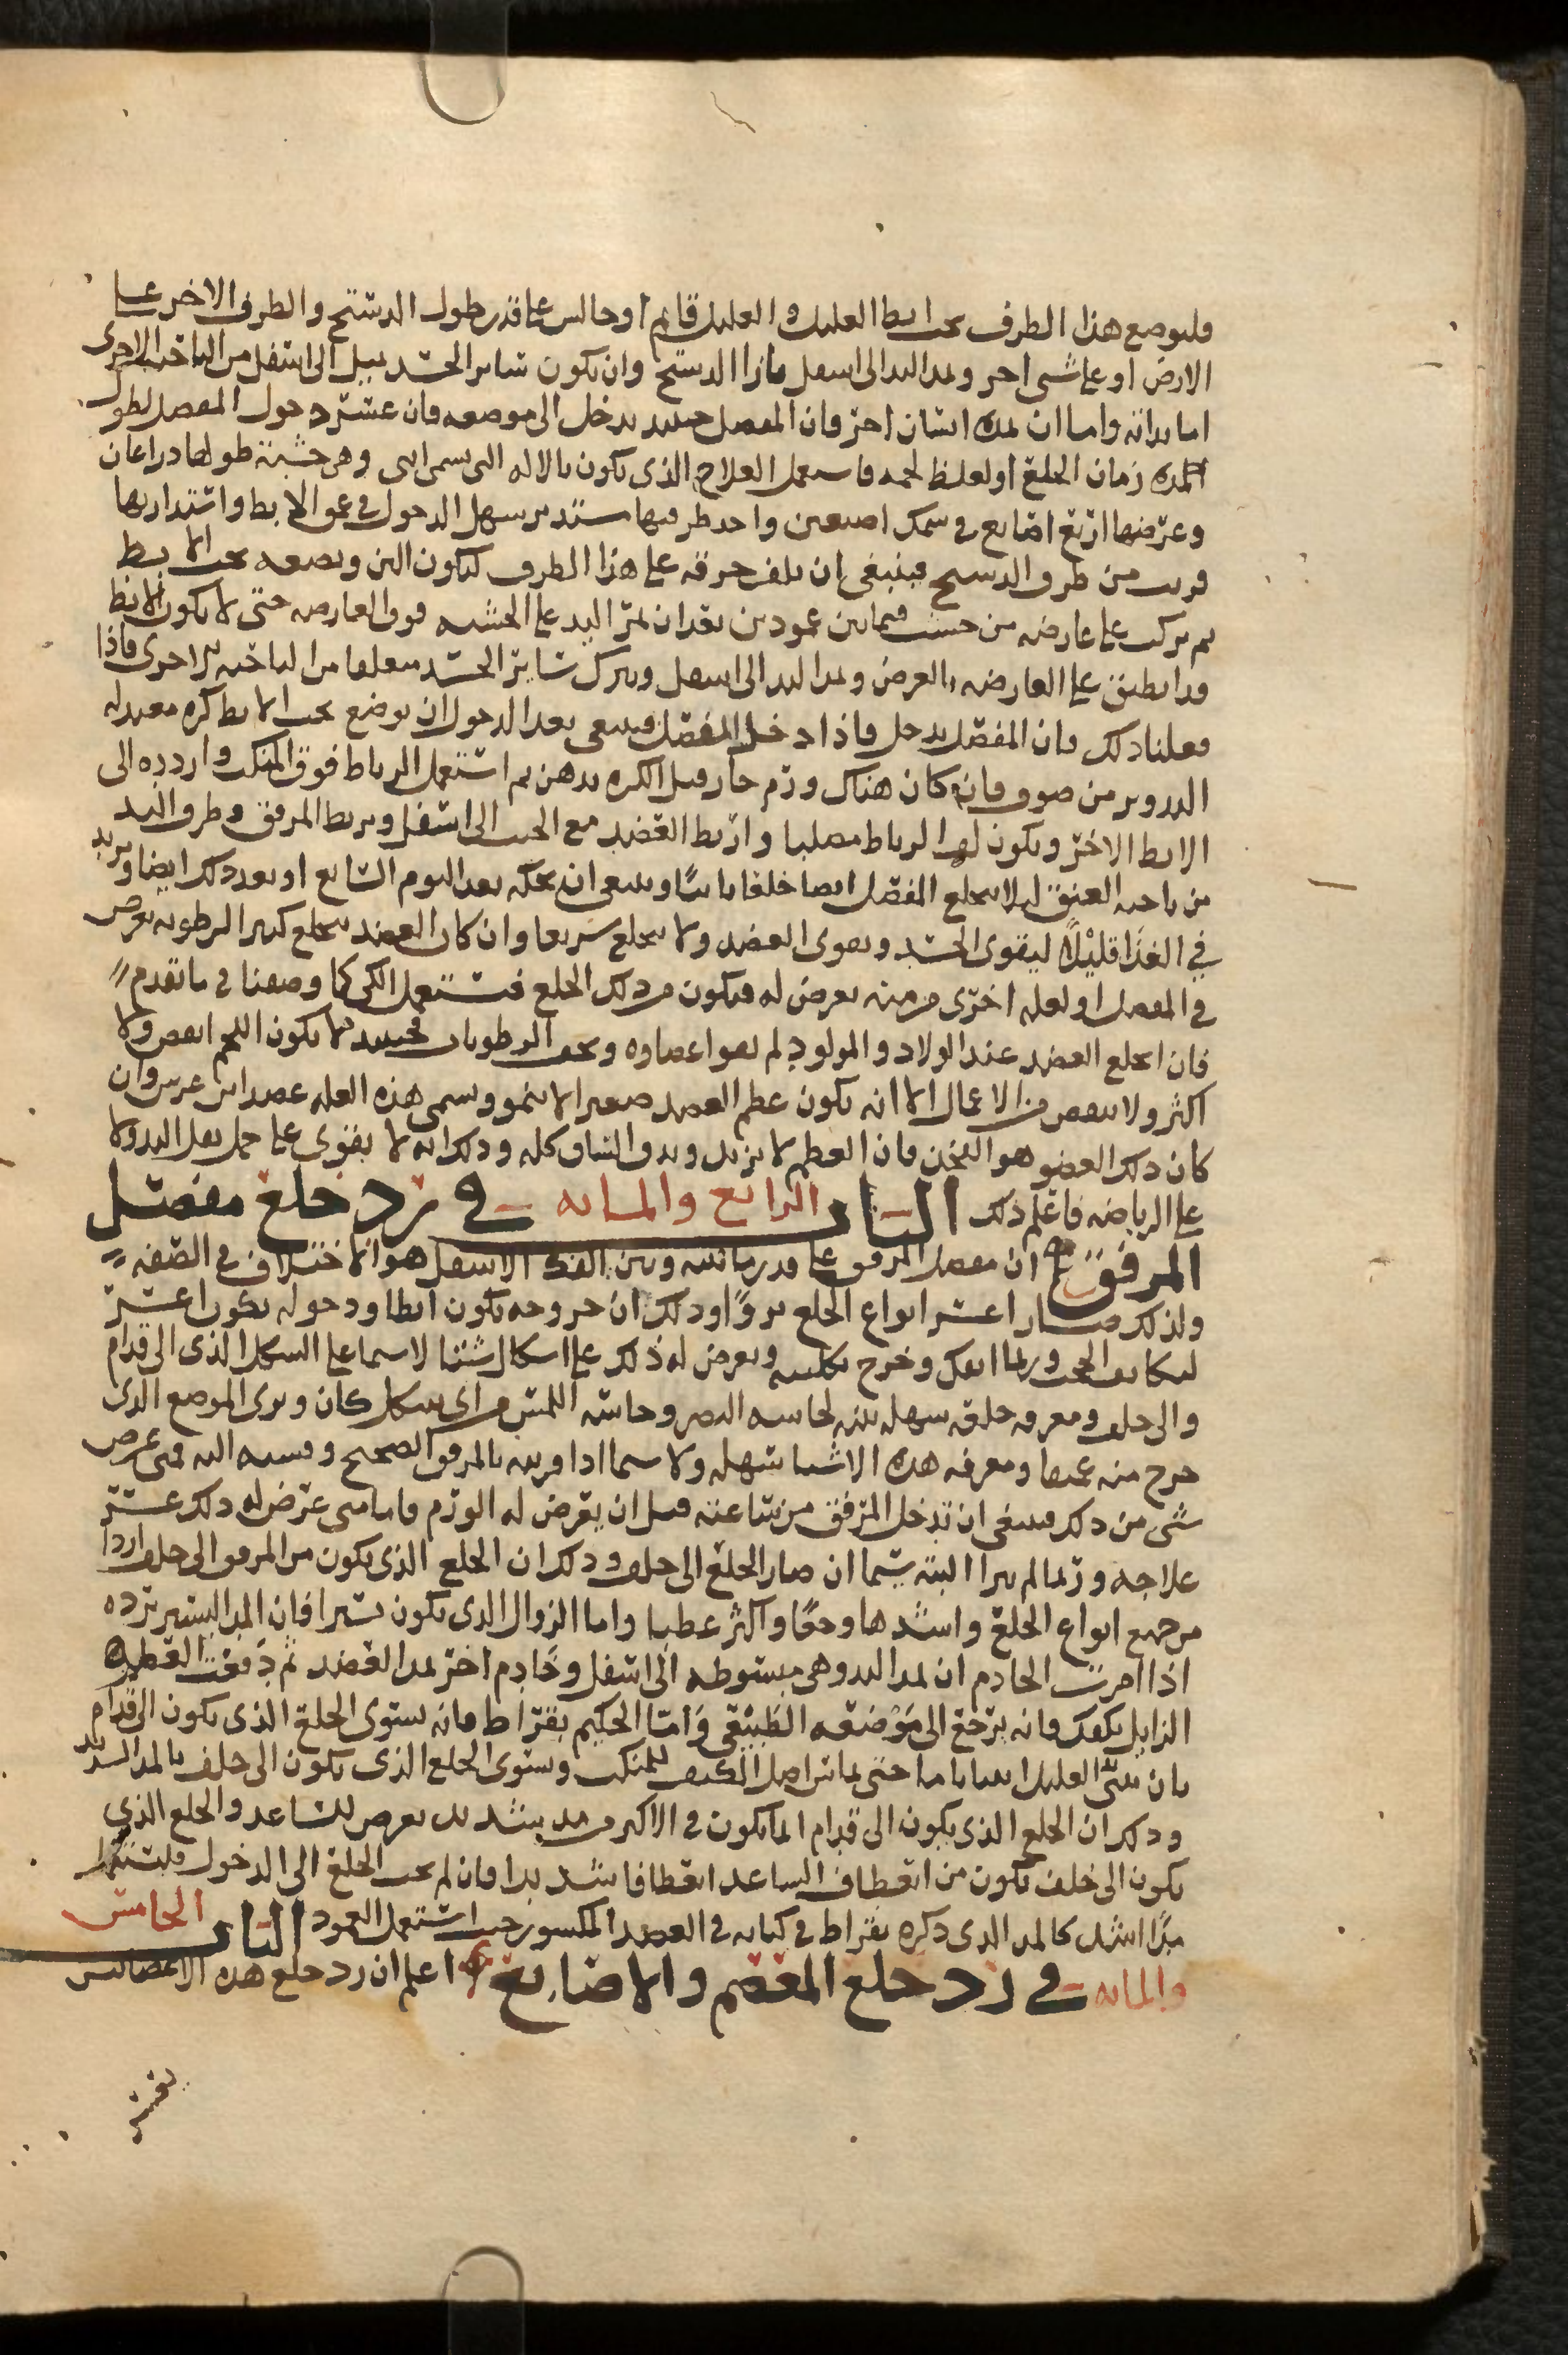 فليوضع هذا الطرف تحت ابط العليل والعليل قايم او جالس على قدر طول الدستج والطرف الاخر على
الارض او على شى اخر وتمد اليد الى اسفل مارا الدستج وان يكون ساير الجسد يميل الى اسفل من الناحيه الاخرى
اما بذاته واما ان يمده انسان اخر فان المفصل حينيد يدخل الى موضعه فان عسر دخول المفصل لطول
المده زمان الخلع او لغلظ لحمه فاستعمل العلاج الذى يكون بالاله التى يسمى ابى وهى خشبة طولها ذراعان
وعرضها اربع اصابع فى سمك اصبعين واحد طرفيها مستدير سهل الدخول فى عمق الابط واستدارتها
قريب من طرف الدستج فينبغى ان تلف خرقه على هذا الطرف ليكون الين ويضعه تحت الابط
ثم تركب على عارضه من خشب فيما بين عمودين بعد ان تمر اليد على الخشبه فوق العارضه حتى لا يكون الابط
قد انطبق على العارضه بالعرض وتمد اليد الى اسفل ويترك ساير الجسد معلقا من الناحيه الاخرى فاذا
فعلنا ذلك فان المفصل يدخل فاذا دخل المفصل فينبغى بعد الدخول ان يوضع تحت الابط كره معتدله
التدوير من صوف فان كان هناك ورم حار فبل الكره بدهن ثم استعمل الرباط فوق المنكب واردده الى
الابط الاخر ويكون لها الرباط مصلبا واربط العضد مع الجنب الى اسفل ويربط المرفق وطرف اليد
من ناحيه العنق ليلا ينخلع المفصل ايضا خلعا ثانيا وينبغى ان تحله بعد اليوم السابع او بعد ذلك ايضا ويزيد
فى الغذا قليلا ليقوى الجسد ويقوى العضد ولا ينخلع سريعا وان كان العضد ينخلع كثيرا لرطوبه تعرض
فى المفصل او لعله اخرى مزمنه تعرض له فيكون من ذلك الخلع فستعمل الكى كما وصفنا فى ما تقدم
فان انخلع العضد عند الولاد والمولود لم تقو اعضاوه وتجف الرطوبات فحينيد لا يكون اللحم انقص ولا
اكثر ولا ينقص من الاعمال الا انه يكون عظم العضد صغيرا لا ينمو ويسمى هذه العله عضد ابن عرس وان
كان ذلك العضو هو الفخذ فان العظم لا يزيد ويدق الساق كله وذلك انه لا يقوى على حمل ثقل البدن ولا
على الرياضه فاعلم ذلك الباب الرابع والمايه فى رد خلع مفصل
المرفق ان مفصل المرفق على قدر ما بينه وبين الفك الاسفل هو الاختلاف فى الصفه
ولذلك صار اعسر انواع الخلع بروا وذلك ان خروجه يكون ابطا ودخوله يكون اعسر
لتكاثف الجنب وربما انفك وخرج بكليته ويعرض له ذلك على اشكال شتا لا سيما على الشكل الذى الى قدام
والى خلف ومعرفه خلعه سهله بينه لحاسه البصر وحاسه اللمس من اى شكل كان ويرى الموضع الذى
خرج منه عميقا ومعرفه هذه الاشيا سهله ولا سيما اذا قرنته بالمرفق الصحيح وقسته اليه فمتى عرض
شى من ذلك فينبغى ان تدخل المرفق من ساعته قبل ان يعرض له الورم فاما متى عرض له ذلك عسر
علاجه وربما لم يبرا البته سيما ان صار الخلع الى خلف وذلك ان الخلع الذى يكون من المرفق الى خلف اردا
من جميع انواع الخلع واشدها وجعا واكثر عطبا واما الزوال الذى يكون يسيرا فان المد اليسير يرده
اذا امرت الخادم ان يمد اليد وهى مبسوطه الى اسفل وخادم اخر يمد العضد ثم دفعت العظم
الزايل بكفك فانه يرجع الى موضعه الطبيعى واما الحكيم بقراط فانه يسوى الخلع الذى يكون الى قدام
بان يثنى العليل انثناياما حتى يماس اصل الكف المنكب ويسوى الخلع الذى يكون الى خلف بالمد الشديد
وذلك ان الخلع الذى يكون الى قدام انما يكون فى الاكثر من مد شديد يعرض للساعد والخلع الذى
يكون الى خلف يكون من انعطاف الساعد انعطافا شديدا فان لم يجب الخلع الى الدخول فليستعمل
مدا اشد كالمد الذى ذكره بقراط فى كتابه فى العضد المكسور حيث استعمل العمود الباب الخامس
والمايه فى رد خلع المعصم والاصابع اعلم ان رد خلع هذه الاعضا ليس